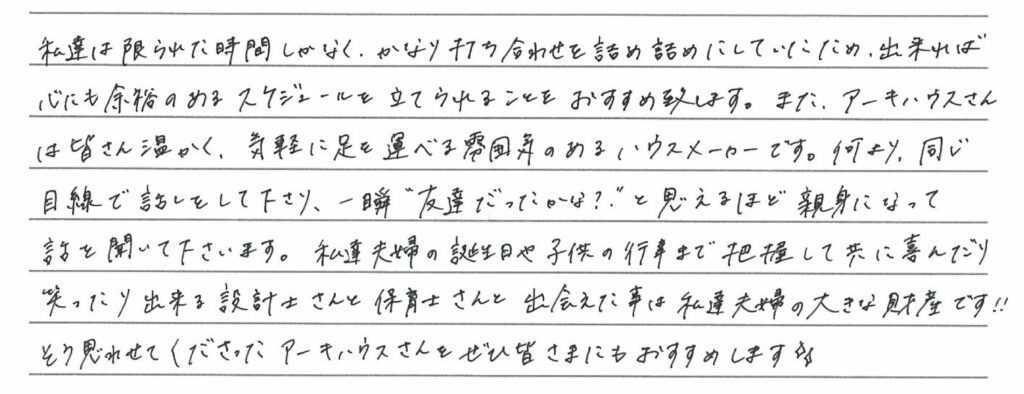 私達は限られた時間しかなく、かなり打ち合わせを詰め詰めにしていたため、出来れば
心にも余裕のあるスケジュールを立てられることをおすすめ致します。また、アーキハウスさん
は皆さん温かく、気軽に足を運べる雰囲気のあるハウスメーカーです。何より、同じ
目線で話しをして下さり、一瞬“友達だったかな？”と思えるほど親身になって
話を聞いて下さいます。私達夫婦の誕生日や子供の行事まで把握して共に喜んだり
笑ったり出来る設計士さんと保育士さんと出会えた事は私達夫婦の大きな財産です!!
そう思わせてくださったアーキハウスさんをぜひ皆さまにもおすすめします